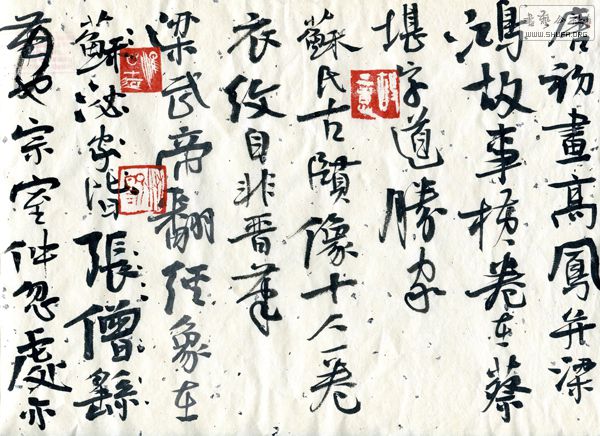 唐初畫高鳳并梁
鴻故事橫卷在蔡
堪字道勝家
蘇氏古賢像十人一卷
衣紋自非晉筆
梁武帝翻經象在
蘇泌家皆張僧繇
也宗室仲忽處亦
WWW.SHUFA.ORG